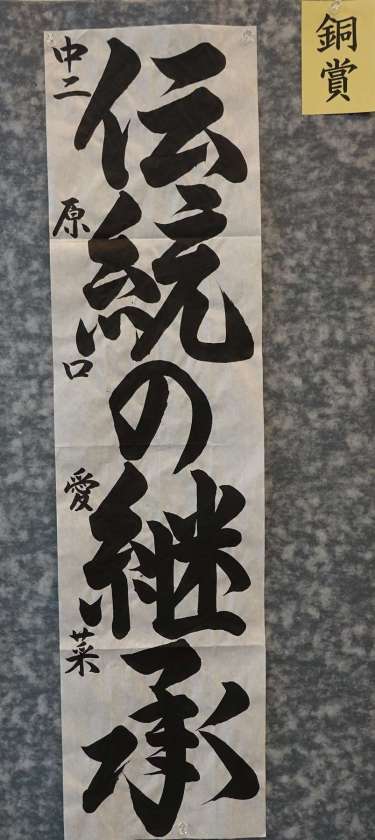 銅賞
伝統の継承
中二 原口愛菜